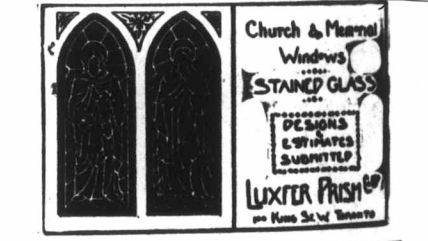 Church & Memorial
Windows
STAINED GLASS
DESIGNS
&
ESTIMATES
SUBMITTED
LUXFER PRISM Co
King St. W. TORONTO